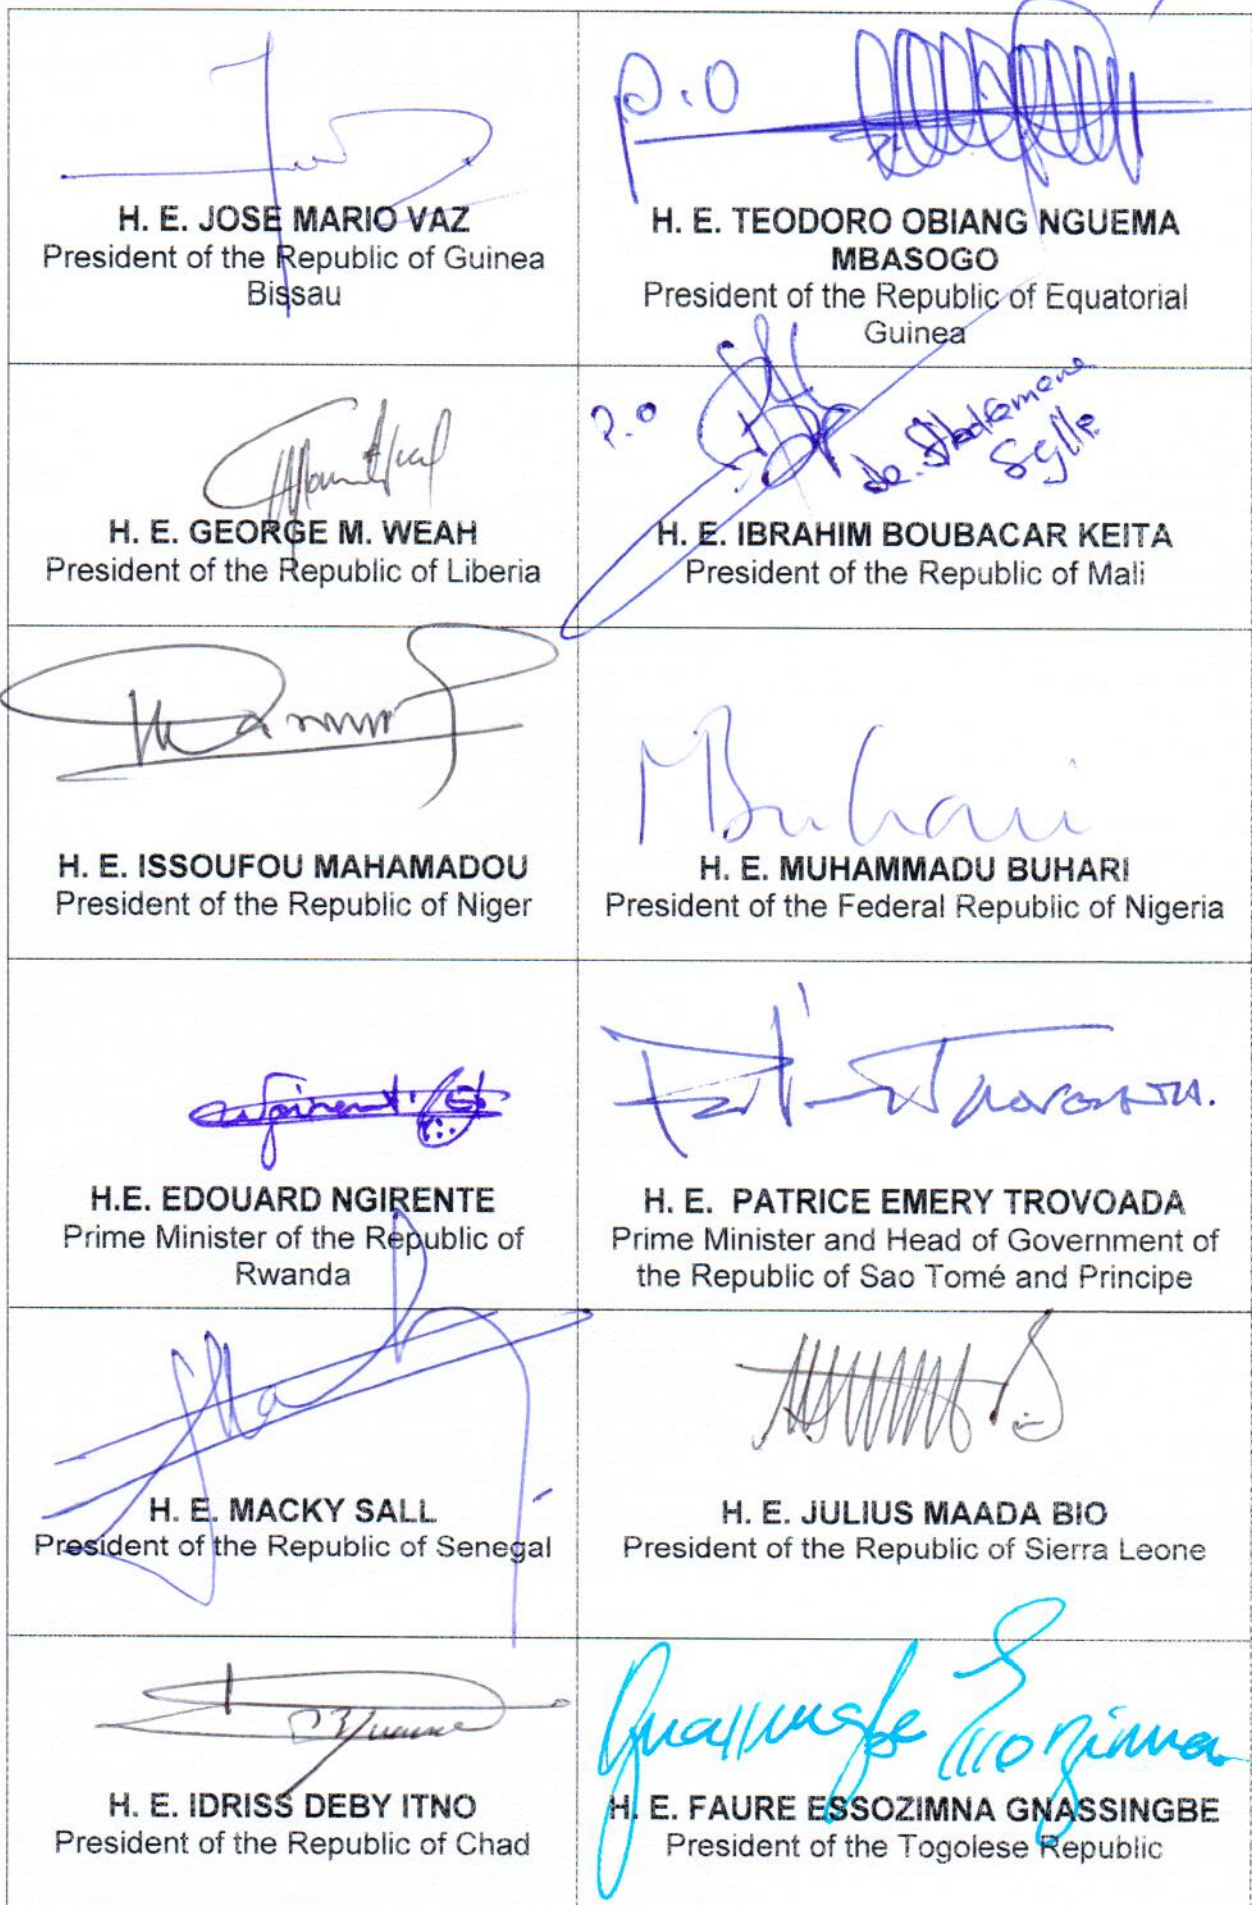 H. E. JOSE MARIO VAZ
President of the Republic of Guinea
Bissau
P.O
H. E. TEODORO OBIANG NGUEMA
MBASOGO
President of the Republic of Equatorial
Guinea
H. E. GEORGE M. WEAH
President of the Republic of Liberia
P.O
H. E. IBRAHIM BOUBACAR KEITA
President of the Republic of Mali
H. E. ISSOUFOU MAHAMADOU
President of the Republic of Niger
MBuhari
H. E. MUHAMMADU BUHARI
President of the Federal Republic of Nigeria
H.E. EDOUARD NGIRENTE
Prime Minister of the Republic of
Rwanda
H. E. PATRICE EMERY TROVOADA
Prime Minister and Head of Government of
the Republic of Sao Tomé and Principe
H. E. MACKY SALL
President of the Republic of Senegal
H. E. JULIUS MAADA BIO
President of the Republic of Sierra Leone
H. E. IDRISS DEBY ITNO
President of the Republic of Chad
Gnassingbe Essozimna
H. E. FAURE ESSOZIMNA GNASSINGBE
President of the Togolese Republic